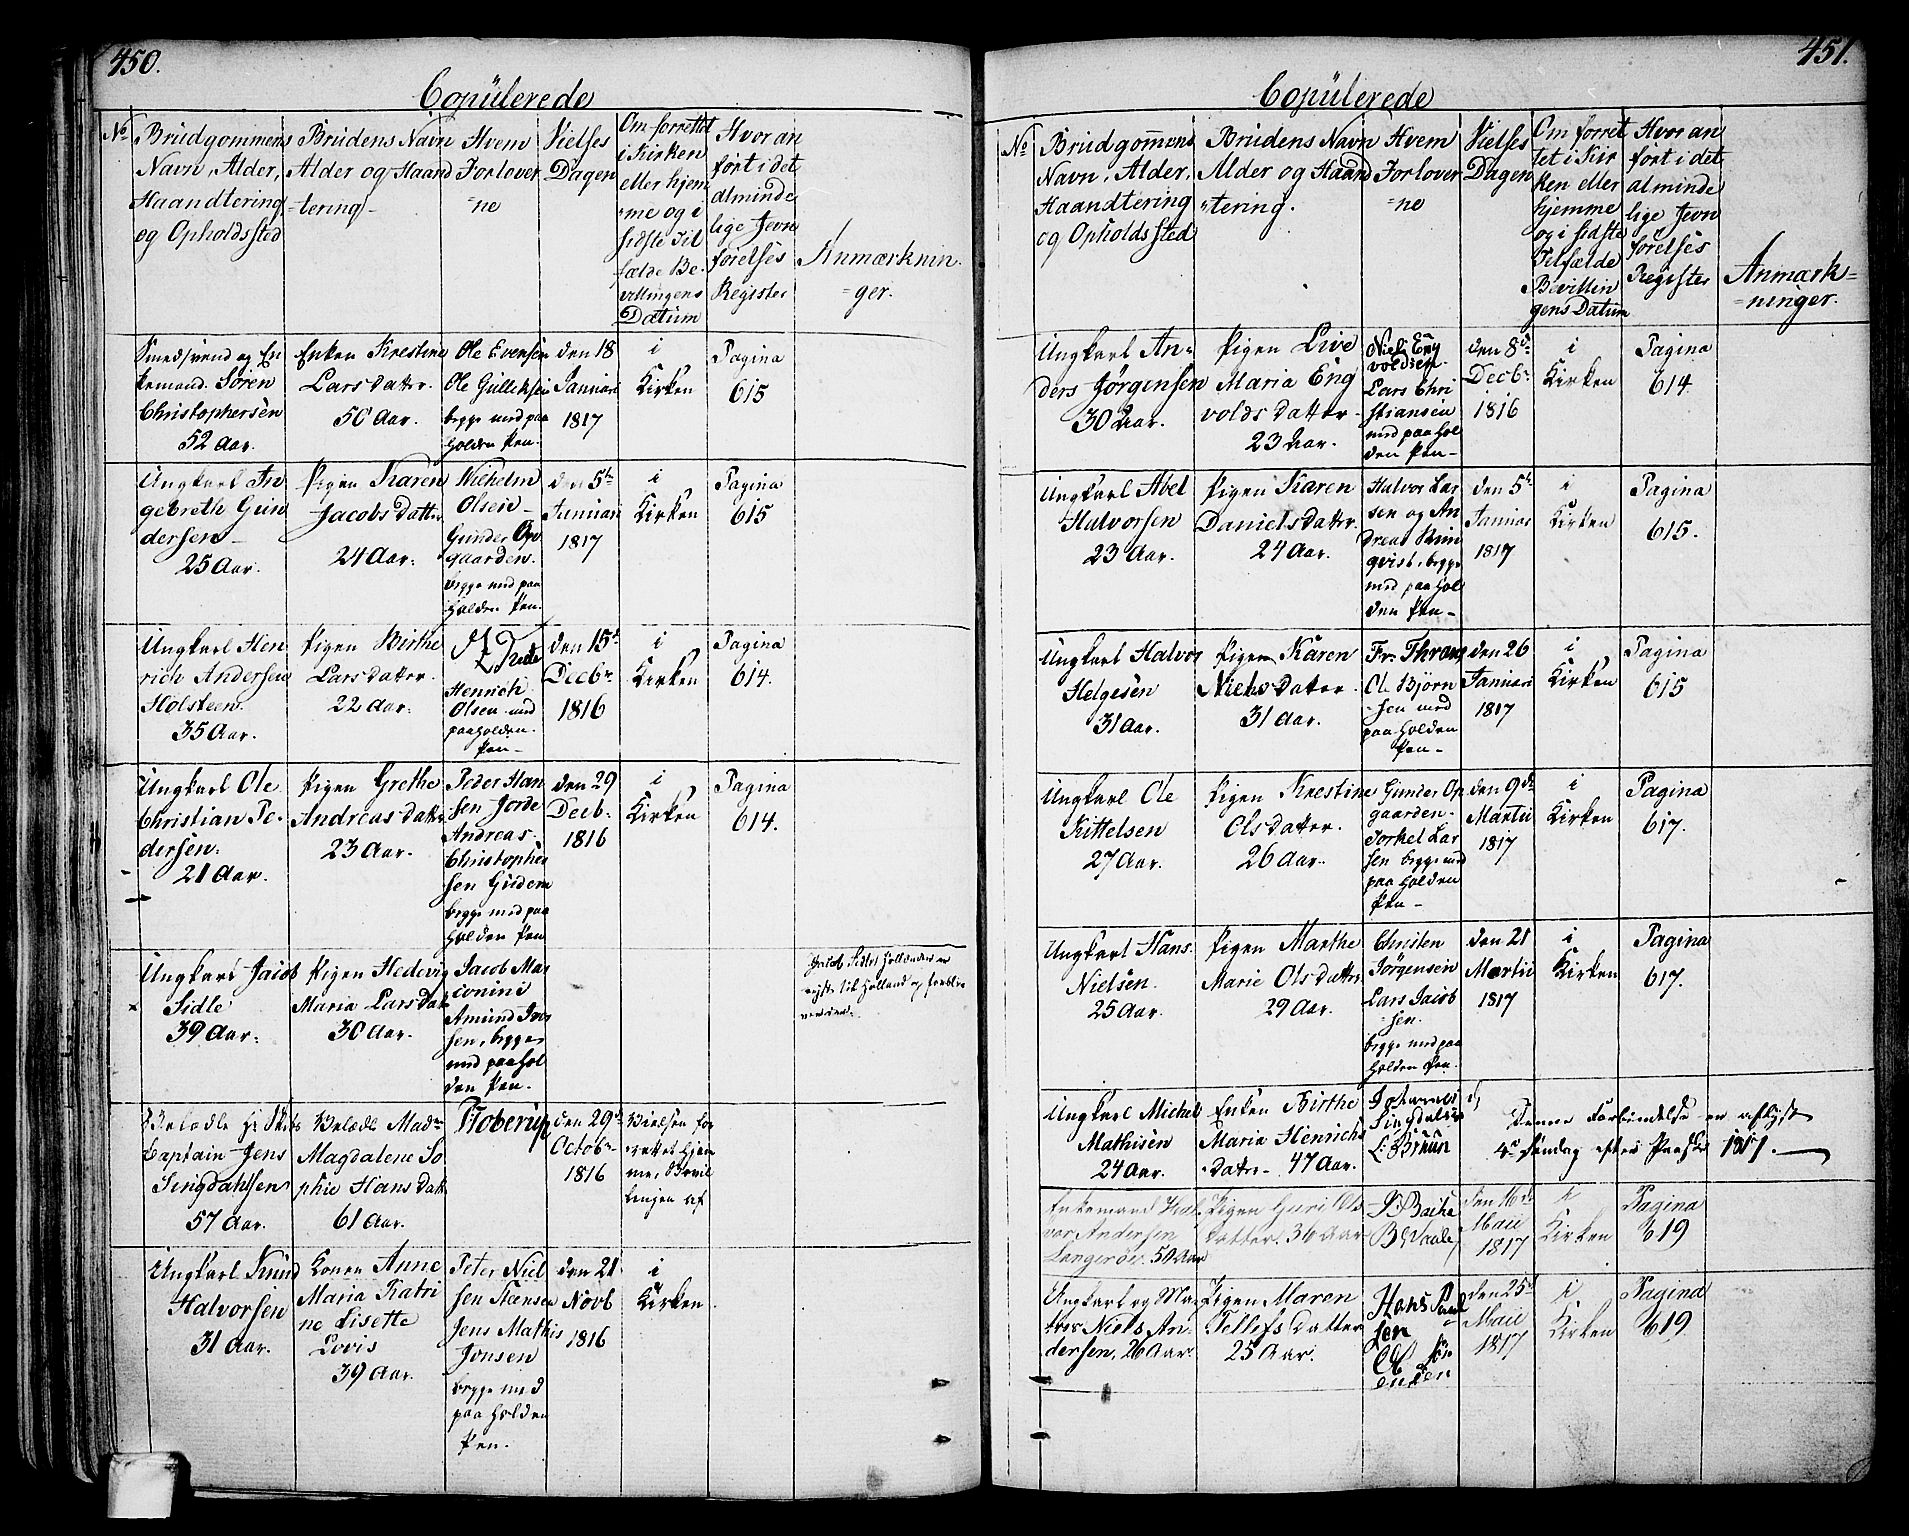 450.
Copülerede
No
Brudgommens
Navn, Alder,
Haandtering
og Opholdssted
Brudens Navn
Alder og Haand
=tering
Hvem
Forlover
=ne
Vielses
Dagen
Om forrettet
i Kirken
eller hjem
=me og i
sidste Til
fælde Be
villingens
Datum
Hvor an
ført i det
alminde
lige Jevn
førelses
Register
Anmærknin
=ger.
Smedsvend og En
kemand. Søren
Christophersen
52 Aar.
Enken Krestine
Larsdatter.
50 Aar.
Ole Evensen
Ole Gulleksen
begge med paa
holden Pen.
den 18
Januari
1817
i
Kirken
Pagina
615
Ungkarl In
gebreth Gun
dersen
25 Aar.
Pigen Karen
Jacobsdatter
24 Aar.
Wilhelm
Olsen
Gunder Op
gaarden.
begge med paa
holden Pen.
den 5te
Januari
1817
i
Kirken
Pagina
615
Ungkarl Hen
rich Andersen
Holsteen.
35 Aar.
Pigen Birthe
Larsdatter.
22 Aar.
Henrich
Olsen med
paaholden
Pen
den 15de
Decbr
1816
i
Kirken
Pagina
614.
Ungkarl Ole
Christian Pe
dersen.
21 Aar.
Pigen Grethe
Andreasdatter
23 Aar.
Peder Han
sen Jorde
Andreas
Christopher
sen Gudem
begge med paa
holden Pen
den 29
Decb.
1816
i
Kirken
Pagina
614.
Ungkarl Jacob
Sidle
39 Aar.
Pigen Hedevig
Maria Larsdatt
30 Aar.
Jacob Mar
conini
Amund Iver
sen, begge
med paahol
den Pen.
Jacob Sidles Hollænder er
rejste til Holland og forbliv
Captain Jens
Lingdahlsen
57 Aar.
Velædle Madm
Magdalene So
phie Hansdatt
61 Aar.
T Toberup
den 29de
Octobr
1816
Vielsen for
rettet hjem
me, Bevil
lingen af
Ungkarl Knud
Halvorsen
31 Aar.
Konen Anne
Maria Katri
ne Lisette
Lovis
39 Aar.
Peter Niel
sen Stensen
Jens Mathis
Jonsen
begge med
paa holden
Pen.
den 21
Novb
1816
i
Kirken
451.
Copülerede
No
Brudgommens
Navn, Alder,
Haandtering
og Opholdssted
Brudens Navn
Alder og Haand
=tering.
Hvem
Forlover
=ne
Vielses
Dagen
Om forret
tet i Kir
ken eller
hjemme
og i sidste
Tilfælde
Bevillin
gens Datum
Hvor an
ført i det
alminde
lige Jevn
førelses
Register
Anmærk=
=ninger.
Ungkarl An=
ders Jörgensen
30 Aar.
Pigen Live
Maria Eng
voldsdatter
23 Aar.
Niels Eng
voldsen
Lars Chri
stiansen
med paahol
den Pen
den 8de
Decbr
1816
i
Kirken
Pagina
614.
Ungkarl Abel
Halvorsen
23 Aar.
Pigen Karen
Danielsdatter.
24 Aar.
Halvor Lar
sen og An
dreas Rim
qvist, begge
med paahol
den Pen
den 5te
Januar
1817
i
Kirken
Pagina
615.
Ungkarl Halvor
Helgesen
31 Aar.
Pigen Karen
Nielsdatter.
31 Aar.
Fr. Thrane
Ole Björn
sen med
paaholden
Pen
den 26
Januari
1817
i
Kirken
Pagina
615
Ungkarl Ole
Kittelsen
27 Aar.
Pigen Krestine
Olsdatter.
26 Aar.
Gunder Op
gaarden.
Torkel Lar
sen begge med
paa holden
Pen
den 9de
Martii
1817
i
Kirken
Pagina
617.
Ungkarl Hans
Nielsen.
25 Aar.
Pigen Marthe
Marie Olsdatter
29 Aar.
Christen
Jörgensen
Lars Jacob
sen.
begge med paa
holden Pen.
den 21
Martii
1817
i
Kirken
Pagina
617.
Ungkarl Michel
Mathisen
24 Aar.
Enken Birthe
Maria Henrichs
datter 47 Aar.
Johannes
Lingdalsen
L: Bruun
Denne Forbindelse er aflyst
4de Søndag efter Paaske 1817.
Enkemand Hal
vor Andersen
Langeröe. 50 Aar
Pigen Guri Ols
datter. 36 Aar
P. Bache
B Waale
den 16de
Maii
1817
i
Kirken
Pagina
619
Ungkarl og Ma
tros Niels An
dersen. 26 Aar.
Pigen Maren
Tellefsdatter
25 Aar.
Hans Paul
sen
den 25de
Maii
1817
i
Kirken
Pagina
619